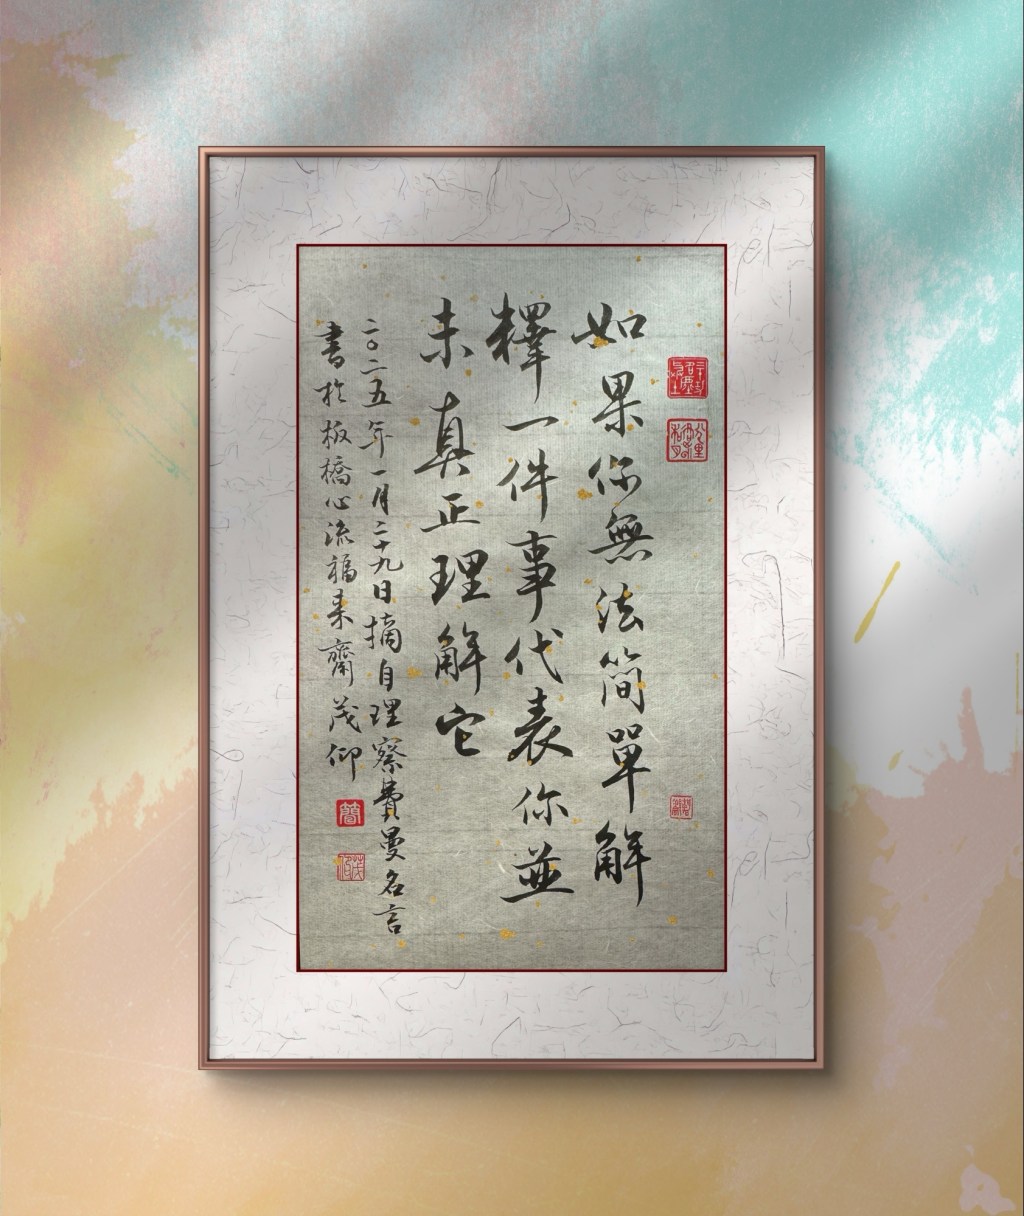 如果你無法簡單解
釋一件事代表你並
未真正理解它
二〇二五年一月二十九日摘自理察費曼名言
書於板橋心流福來齋茂仰
簡